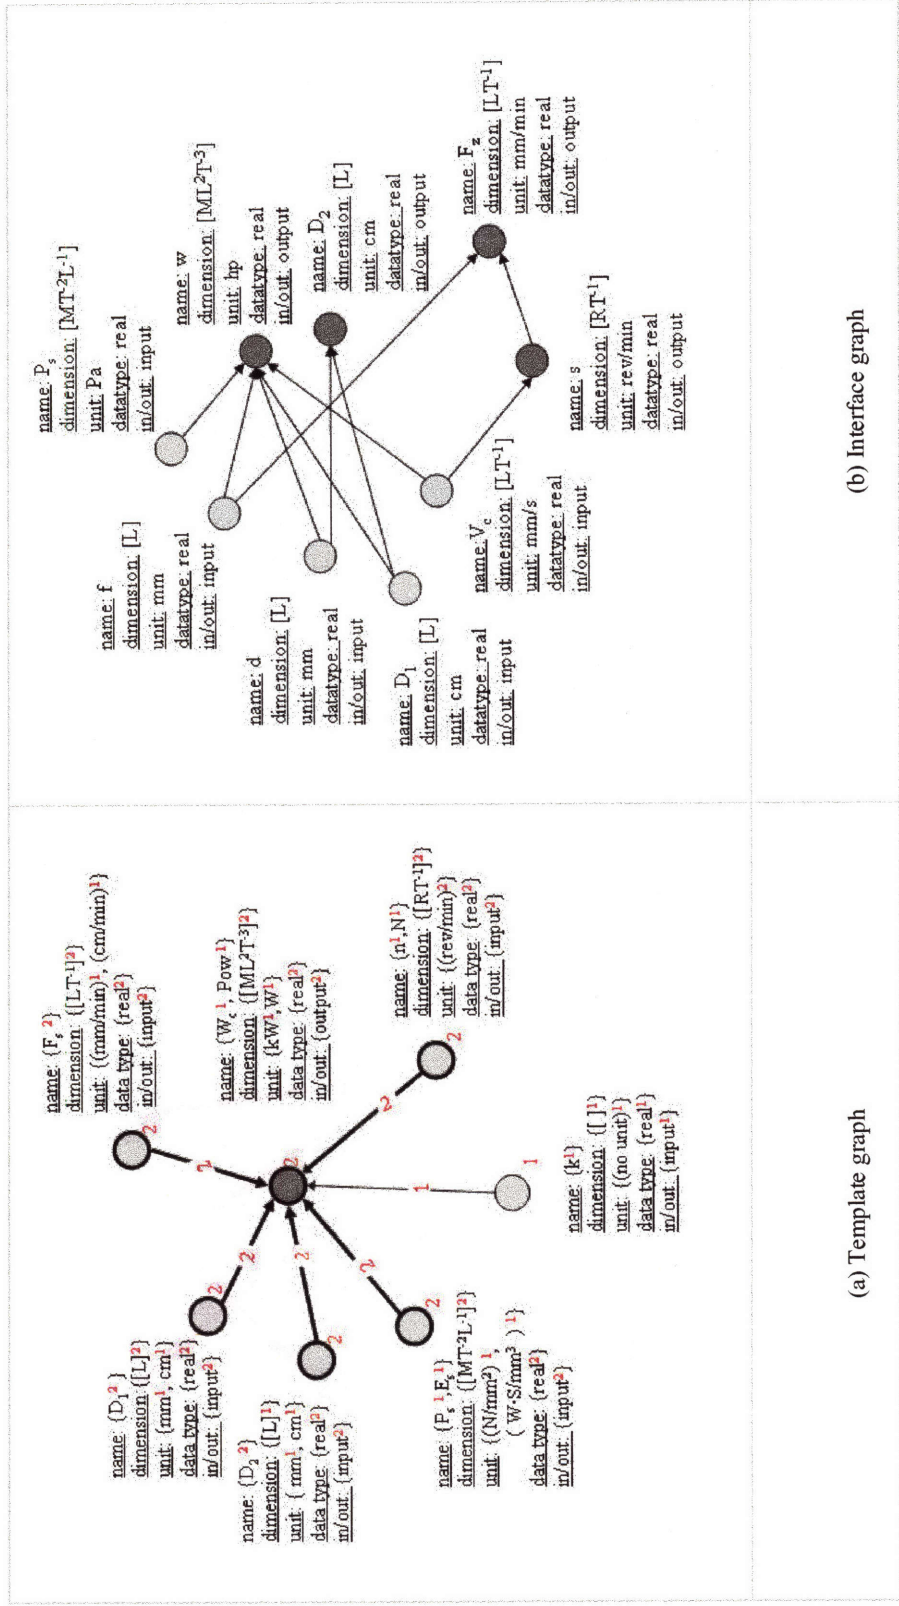 name: {F_s ²}
dimension: {[LT⁻¹]²}
unit: {(mm/min)¹, (cm/min)¹}
data type: {real²}
in/out: {input²}
2
2
name: {D₁² }
dimension: {[L]²}
unit: {mm¹, cm¹}
data type: {real²}
in/out: {input²}
2
2
name: {W_c ¹, Pow¹}
dimension: {[ML²T⁻³]²}
unit: {kW¹,W¹}
data type: {real²}
in/out: {output²}
2
name: {D₂ ²}
dimension: {[L]¹}
unit: { mm¹, cm¹}
data type: {real²}
in/out: {input²}
2
2
name: {n¹,N¹}
dimension: {[RT⁻¹]²}
unit: {(rev/min)²}
data type: {real²}
in/out: {input²}
2
2
name: {P_s ¹,E_s¹}
dimension: {[MT⁻²L⁻¹]²}
unit: {(N/mm²) ¹,
( W·S/mm³ ) ¹}
data type: {real²}
in/out: {input²}
2
2
name: {k¹}
dimension: {[ ]¹}
unit: {(no unit)¹}
data type: {real¹}
in/out: {input¹}
1
1
(a) Template graph
name: P_s
dimension: [MT⁻²L⁻¹]
unit: Pa
datatype: real
in/out: input
name: f
dimension: [L]
unit: mm
datatype: real
in/out: input
name: w
dimension: [ML²T⁻³]
unit: hp
datatype: real
in/out: output
name: d
dimension: [L]
unit: mm
datatype: real
in/out: input
name: D₂
dimension: [L]
unit: cm
datatype: real
in/out: output
name: D₁
dimension: [L]
unit: cm
datatype: real
in/out: input
name: V_c
dimension: [LT⁻¹]
unit: mm/s
datatype: real
in/out: input
name: F_z
dimension: [LT⁻¹]
unit: mm/min
datatype: real
in/out: output
name: s
dimension: [RT⁻¹]
unit: rev/min
datatype: real
in/out: output
(b) Interface graph